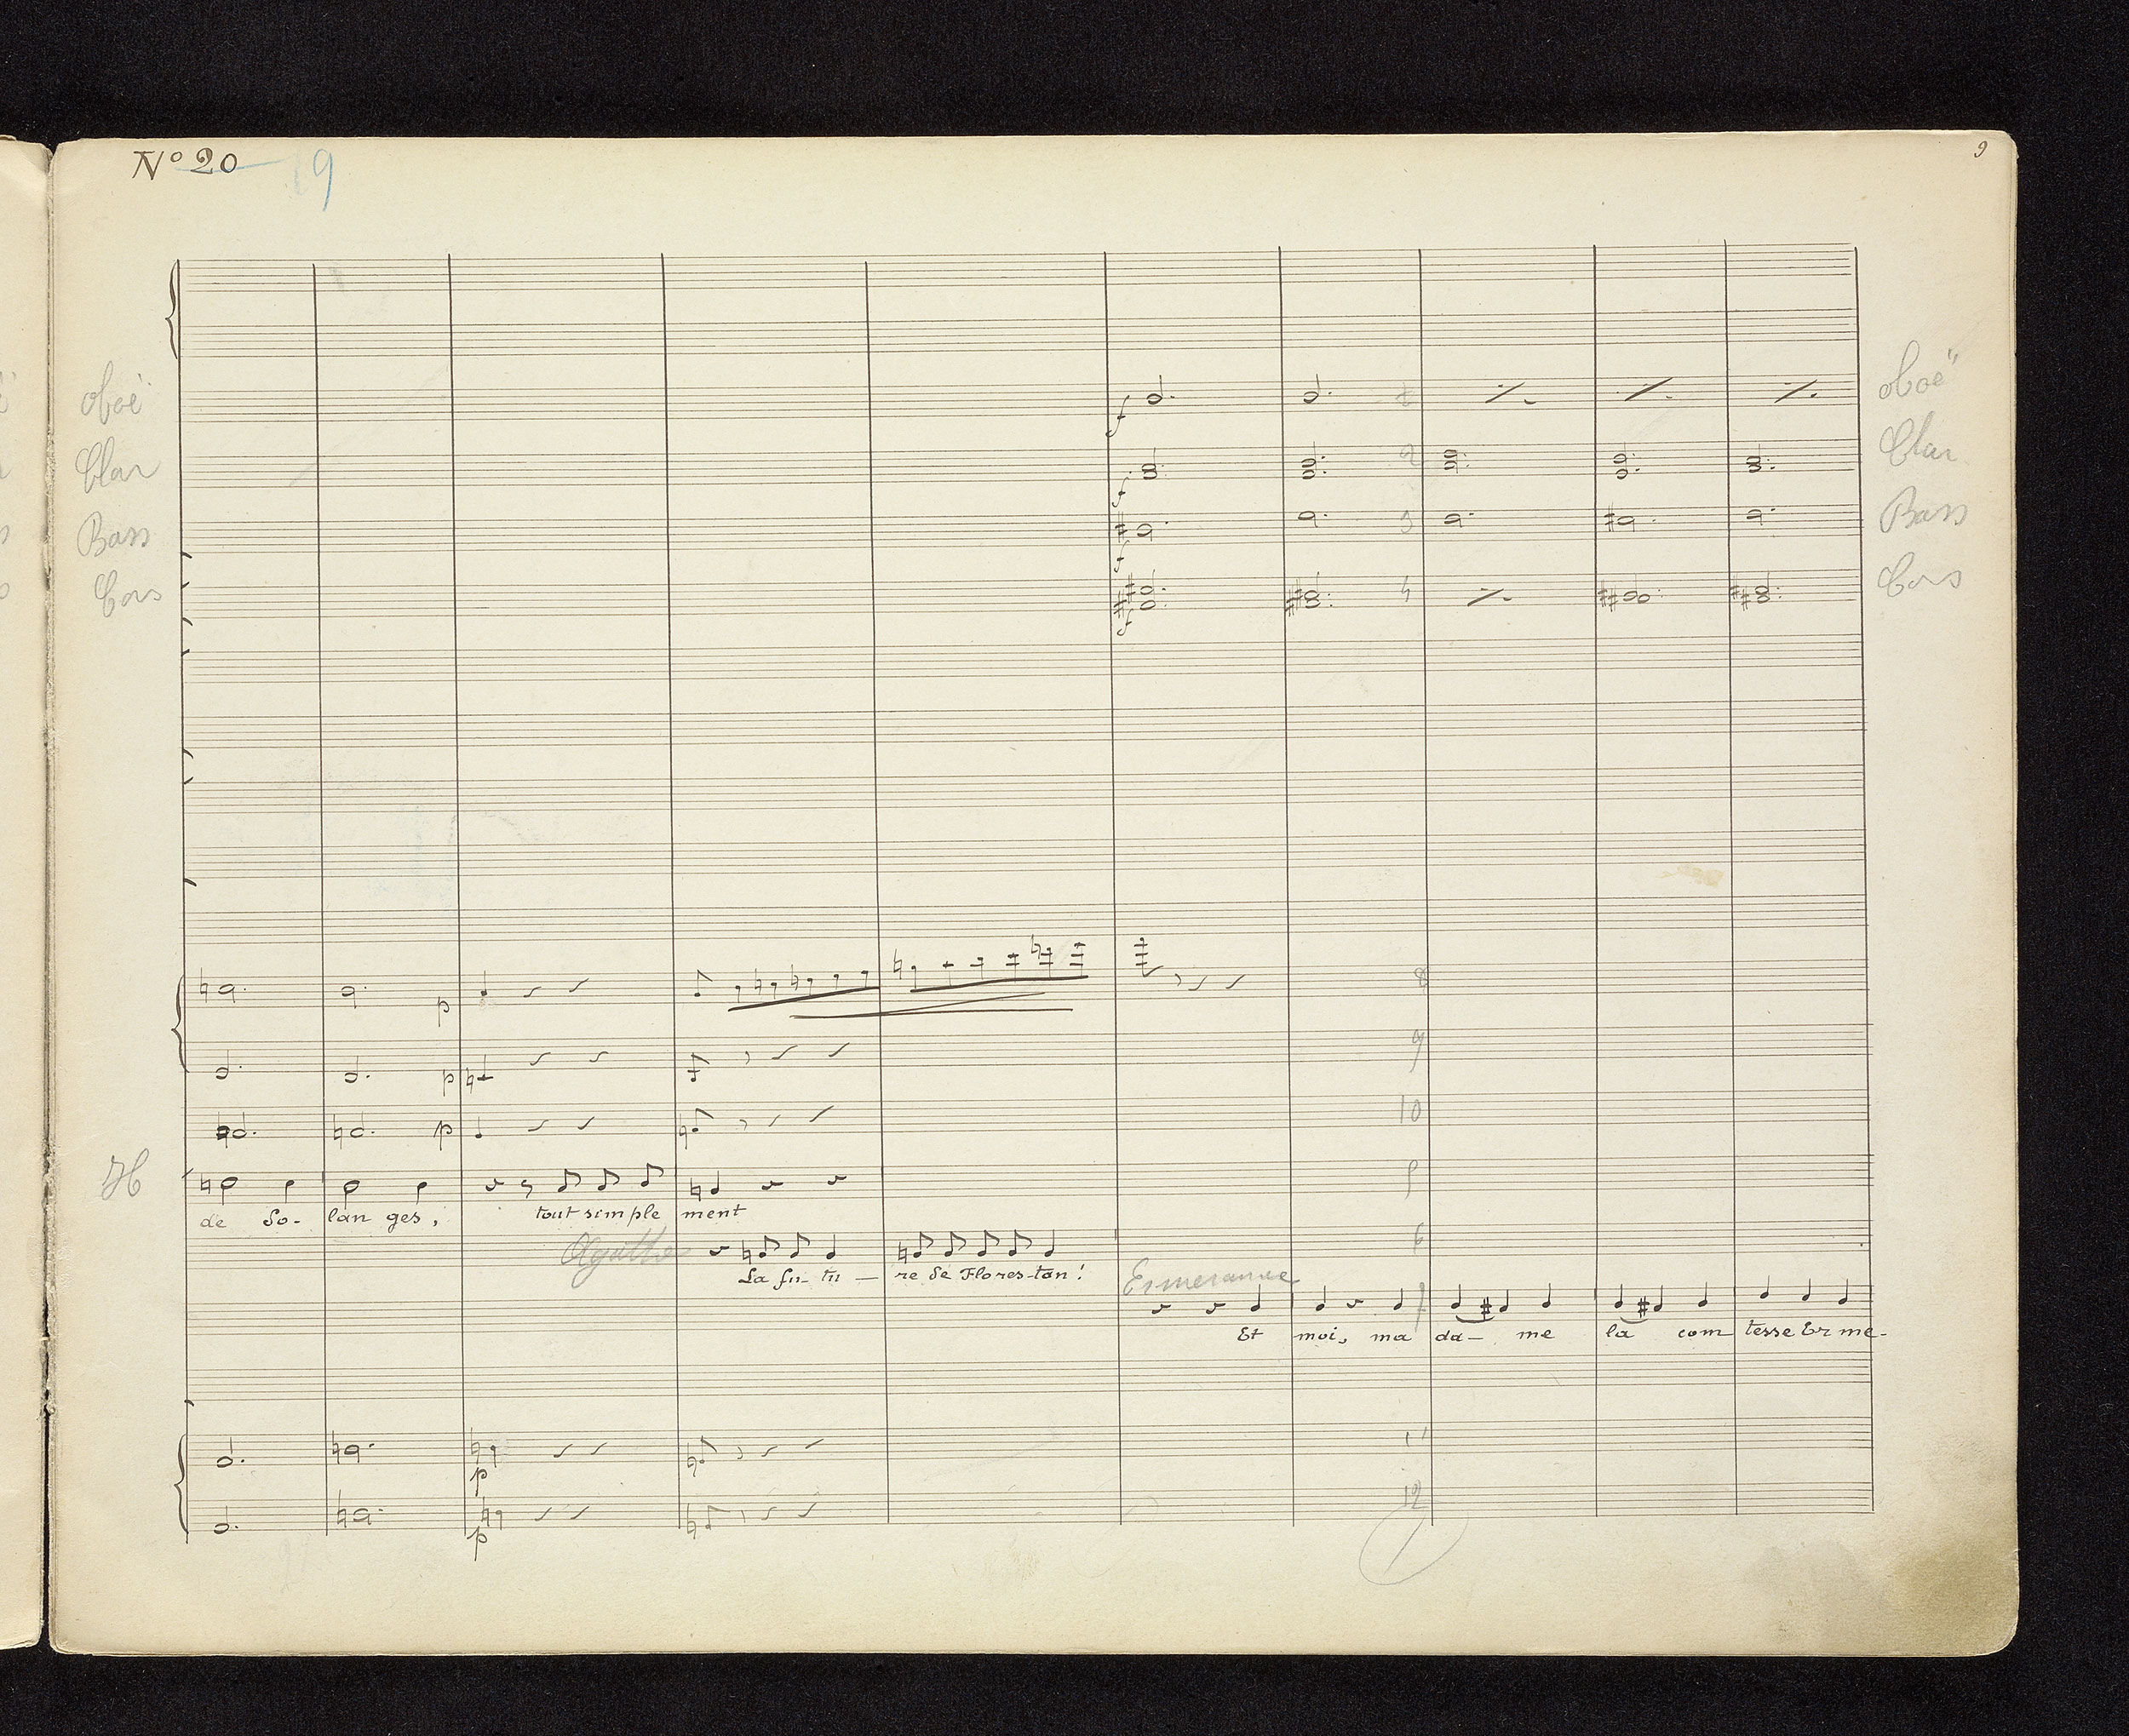 Nº 20 19
9
oboë oboë
f
Clar 2 Clar
f
Bass 3 Bass
f
Cors 4 Cors
f
8
p
9
p
10
p
H
de So- lan ges, tout simple ment
Agathe 6
La fu- tu — re de Flores-tan!
Esmerance
7
Et moi, ma da- me la com tesse Er me-
11
p
12
p
1